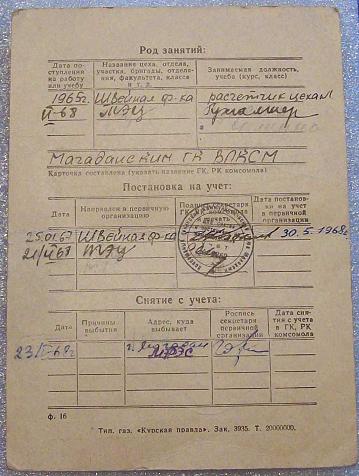 Род занятий:
Дата по-
ступления
на работу
или учебу
Название цеха, отдела,
участка, бригады, отделе-
ния, факультета, класса
и т. д.
Занимаемая должность,
учеба (курс, класс)
1965г. Швейная ф-ка расчетчик цеха
II-68 МЭЦ Бухгалтер
Магаданским ГК ВЛКСМ
Карточка составлена (указать название ГК, РК комсомола)
Постановка на учет:
Дата
Направлен в первичную
организацию
Подпись секретаря
ГК
Дата постанов-
ки на учет
в первичной
организации
Швейная ф-ка 30.5.1968г
МЭЦ
Снятие с учета:
Дата
Причины
выбытия
Адрес, куда
выбывает
Роспись
секретаря
первичной
организации
Дата сня-
тия с учета
в ГК, РК
комсомола
г. Магадан
МЭС
ф. 16
Тип. газ. «Курская правда». Зак. 3935. Т. 20000000.